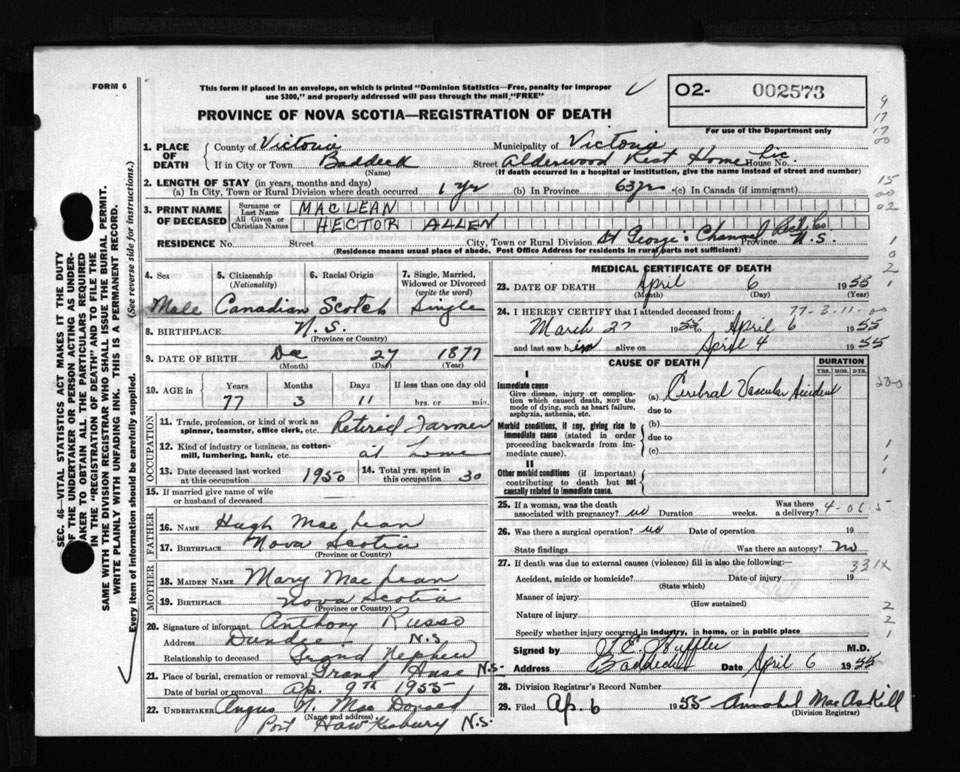 FORM 6
This form if placed in an envelope, on which is printed "Dominion Statistics—Free, penalty for improper
use $300," and properly addressed will pass through the mail "FREE"
O2- 002573
For use of the Department only
PROVINCE OF NOVA SCOTIA—REGISTRATION OF DEATH
1. PLACE OF DEATH County of Victoria Municipality of Victoria
If in City or Town Baddeck Street Alderwood Rest Home House No.
(Name) (If death occurred in a hospital or institution, give the name instead of street and number)
2. LENGTH OF STAY (in years, months and days)
(a) In City, Town or Rural Division where death occurred 1 yr (b) In Province 63 yrs (c) In Canada (if immigrant)
3. PRINT NAME OF DECEASED Surname or Last Name MACLEAN
All Given or Christian Names HECTOR ALLEN
RESIDENCE No. Street City, Town or Rural Division St George's Channel Province N.S.
(Residence means usual place of abode. Post Office Address for residents in rural parts not sufficient)
4. Sex 5. Citizenship (Nationality) 6. Racial Origin 7. Single, Married, Widowed or Divorced (write the word)
Male Canadian Scotch Single
8. BIRTHPLACE N.S.
(Province or Country)
9. DATE OF BIRTH Dec 27 1877
(Month) (Day) (Year)
10. AGE in Years Months Days If less than one day old
77 3 11 hrs. or min.
OCCUPATION
11. Trade, profession, or kind of work as spinner, teamster, office clerk, etc. Retired Farmer
12. Kind of industry or business, as cotton-mill, lumbering, bank, etc. at home
13. Date deceased last worked at this occupation 1950 14. Total yrs. spent in this occupation 30
15. If married give name of wife or husband of deceased
FATHER
16. Name Hugh MacLean
17. Birthplace Nova Scotia
(Province or Country)
MOTHER
18. MAIDEN NAME Mary MacLean
19. Birthplace Nova Scotia
(Province or Country)
20. Signature of informant Anthony Russo
Address Dundee N.S.
Relationship to deceased Grand Nephew
21. Place of burial, cremation or removal Grand Anse N.S.
Date of burial or removal Ap. 9TH 1955
22. UNDERTAKER Angus N. MacDonald
(Name and address)
Port Hawkesbury N.S.
MEDICAL CERTIFICATE OF DEATH
23. DATE OF DEATH April 6 1955
(Month) (Day) (Year)
24. I HEREBY CERTIFY that I attended deceased from: 77-3-11-00
March 27 1955 to April 6 1955
and last saw him alive on April 4 1955
CAUSE OF DEATH DURATION
YRS. MOS. DYS.
I
Immediate cause
Give disease, injury or complication which caused death, not the mode of dying, such as heart failure, asphyxia, asthenia, etc.
(a) Cerebral Vascular Accident
due to
Morbid conditions, if any, giving rise to immediate cause (stated in order proceeding backwards from immediate cause).
(b)
due to
(c)
II
Other morbid conditions (if important) contributing to death but not causally related to immediate cause.
25. If a woman, was the death associated with pregnancy? no Duration weeks. Was there a delivery?
26. Was there a surgical operation? no Date of operation 19
State findings Was there an autopsy? No
27. If death was due to external causes (violence) fill in also the following:— 331X
Accident, suicide or homicide? Date of injury 19
(State which)
Manner of injury
(How sustained)
Nature of injury
Specify whether injury occurred in industry, in home, or in public place
Signed by M.D.
Address Baddeck Date April 6 1955
28. Division Registrar's Record Number
29. Filed Ap. 6 1955 Annabel MacAskill
(Division Registrar)
SEC. 46—VITAL STATISTICS ACT MAKES IT THE DUTY
OF THE UNDERTAKER OR PERSON ACTING AS UNDER-
TAKER TO OBTAIN ALL THE PARTICULARS REQUIRED
IN THE "REGISTRATION OF DEATH" AND TO FILE THE
SAME WITH THE DIVISION REGISTRAR WHO SHALL ISSUE THE BURIAL PERMIT.
WRITE PLAINLY WITH UNFADING INK. THIS IS A PERMANENT RECORD.
Every item of information should be carefully supplied. (See reverse side for instructions.)